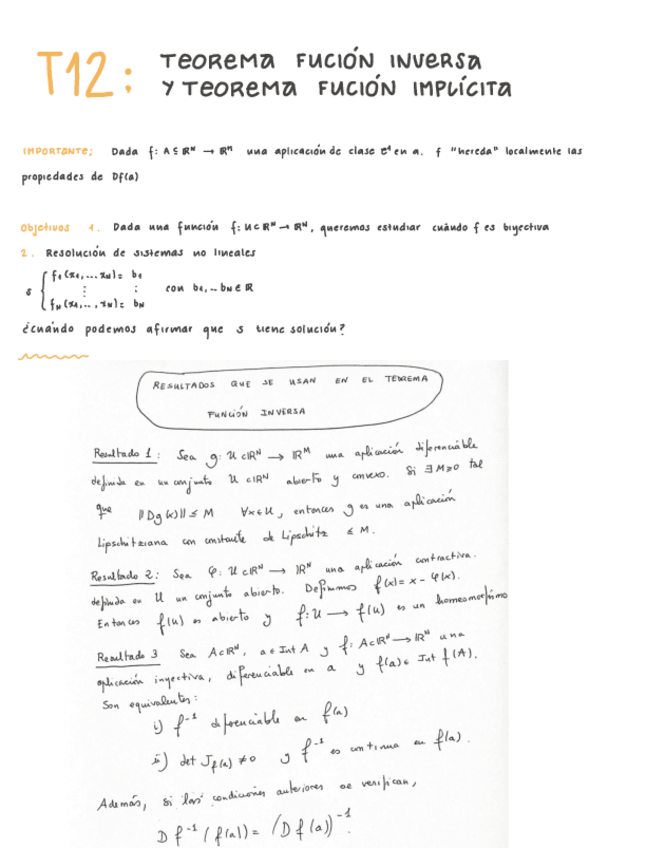 T12: TEOREMA FUCIÓN INVERSA
Y TEOREMA FUCIÓN IMPLÍCITA
IMPORTANTE; Dada f: A ⊆ ℝᴺ → ℝᴹ una aplicación de clase C¹ en a. f "hereda" localmente las
propiedades de Df(a)
Objetivos 1. Dada una función f: U ⊂ ℝᴺ → ℝᴺ, queremos estudiar cuándo f es biyectiva
2. Resolución de sistemas no lineales
f₁(x₁,... xN) = b₁
S { ⋮ ⋮ con b₁,.. bN ∈ ℝ
fN(x₁,..., xN) = bN
¿cuándo podemos afirmar que S tiene solución?
RESULTADOS QUE SE USAN EN EL TEOREMA
FUNCIÓN INVERSA
Resultado 1: Sea g: U ⊂ ℝᴺ → ℝᴹ una aplicación diferenciable
definida en un conjunto U ⊂ ℝᴺ abierto y convexo. Si ∃ M≥0 tal
que ‖Dg(x)‖ ≤ M ∀x∈U, entonces g es una aplicación
Lipschitziana con constante de Lipschitz ≤ M.
Resultado 2: Sea φ: U ⊂ ℝᴺ → ℝᴺ una aplicación contractiva.
definida en U un conjunto abierto. Definimos f(x) = x - φ(x).
Entonces f(U) es abierto y f: U → f(U) es un homeomorfismo
Resultado 3 Sea A⊂ℝᴺ, a ∈ Int A y f: A⊂ℝᴺ → ℝᴺ una
aplicación inyectiva, diferenciable en a y f(a) ∈ Int f(A).
Son equivalentes:
i) f⁻¹ diferenciable en f(a)
ii) det J_f(a) ≠ 0 y f⁻¹ es continua en f(a).
Además, si las condiciones anteriores se verifican,
D f⁻¹(f(a)) = (D f(a))⁻¹.